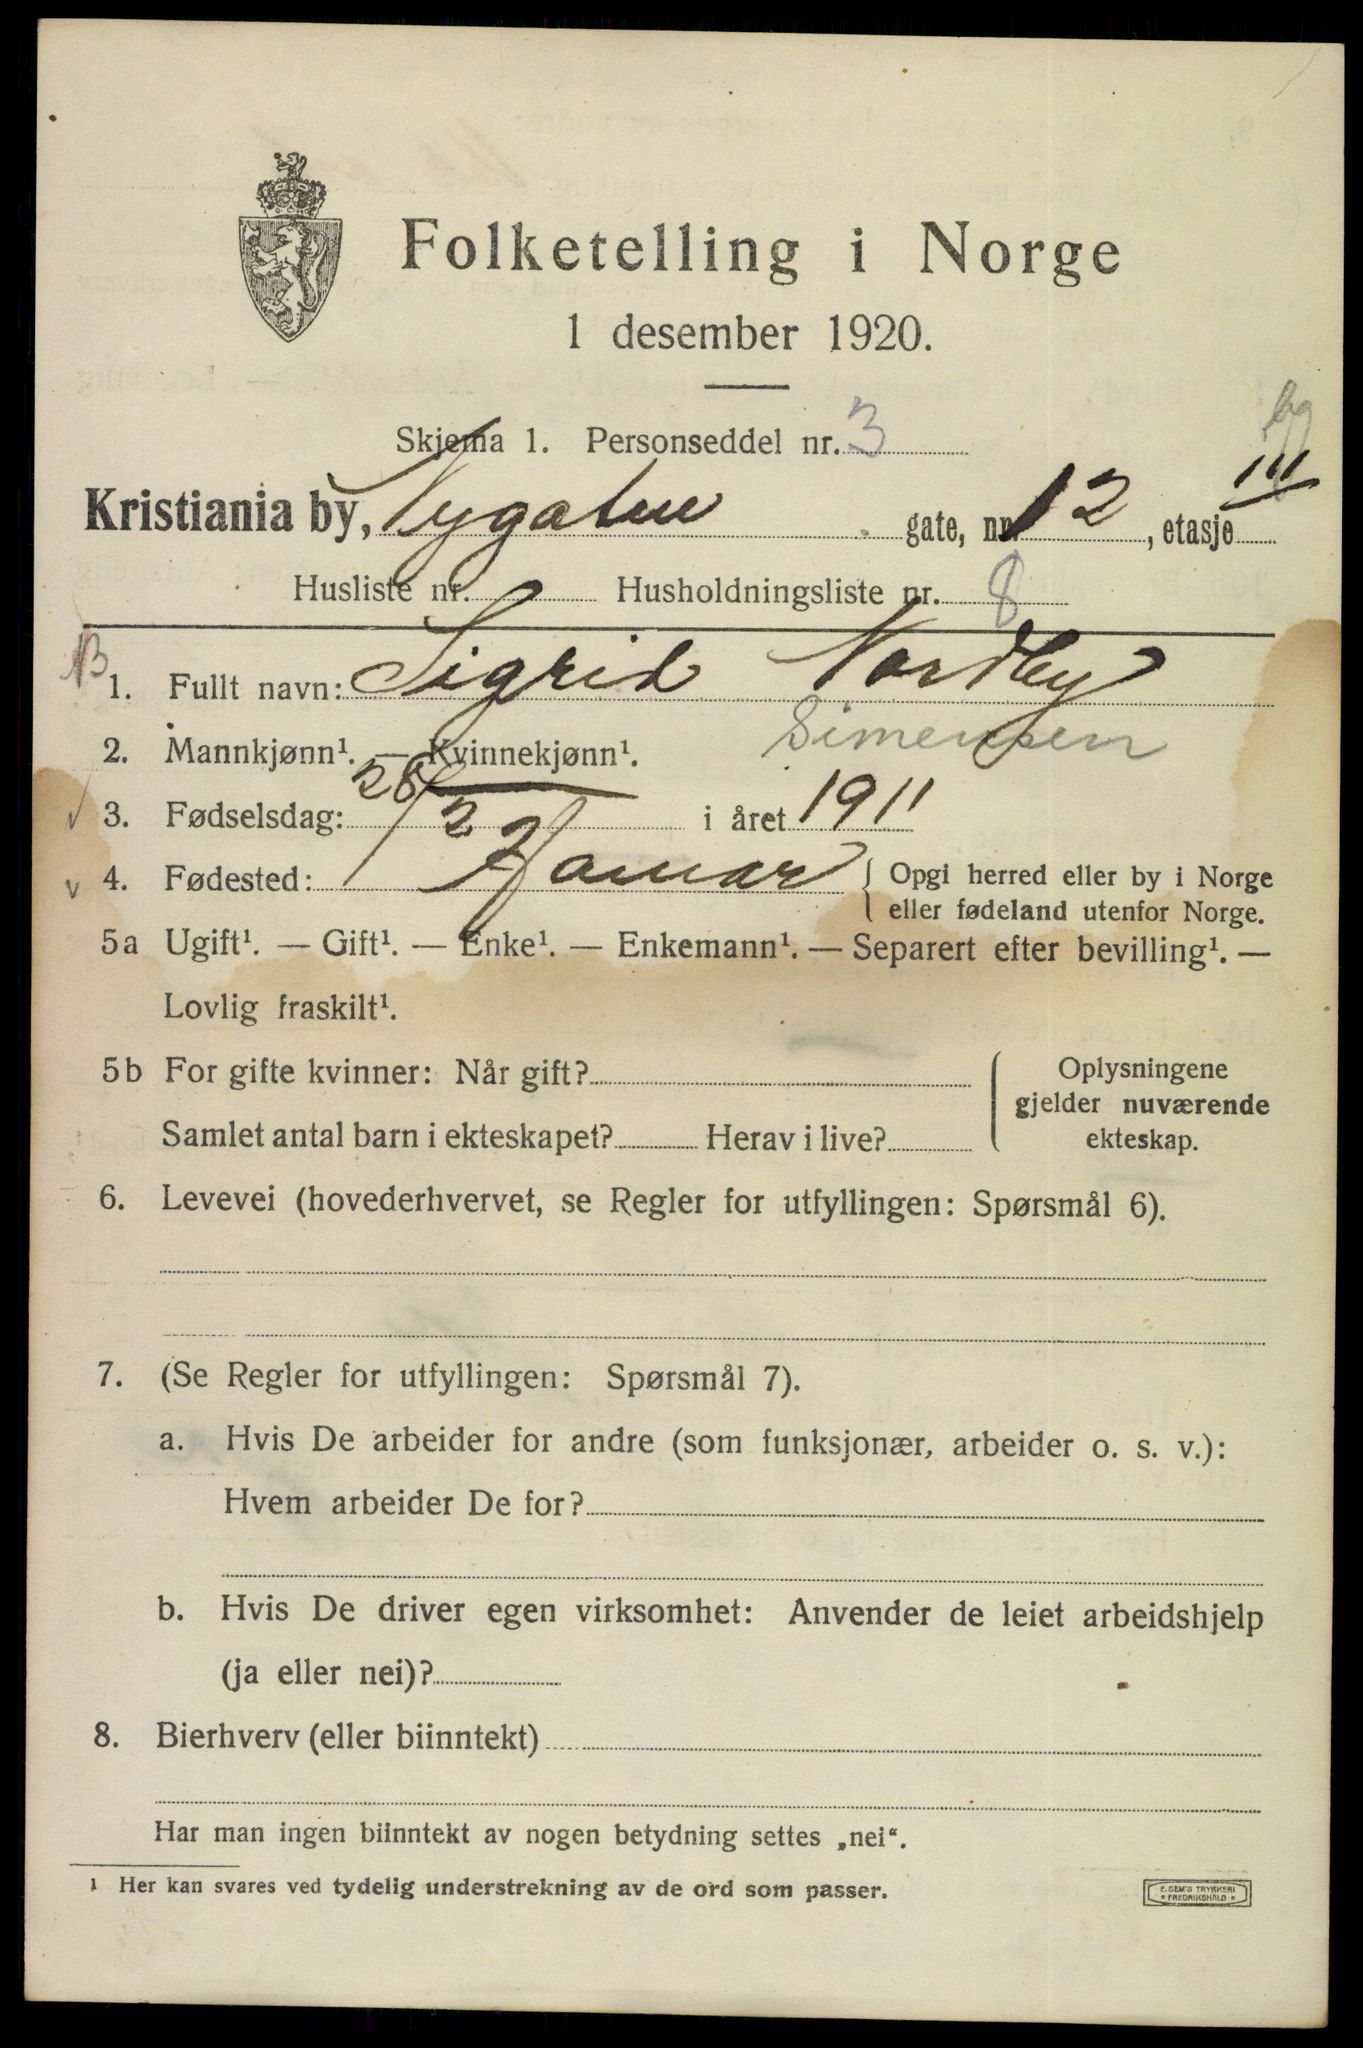 Folketelling i Norge
1 desember 1920.
Skjema 1. Personseddel nr. 3
Kristiania by, Nygaten gate, nr. 12, etasje III
Husliste nr. Husholdningsliste nr. 8
1. Fullt navn: Sigrid Nordby
Simensen
2. Mannkjønn¹. — Kvinnekjønn¹.
3. Fødselsdag: 28/2 i året 1911
4. Fødested: Hamar { Opgi herred eller by i Norge
eller fødeland utenfor Norge.
5a Ugift¹. — Gift¹. — Enke¹. — Enkemann¹. — Separert efter bevilling¹. —
Lovlig fraskilt¹.
5b For gifte kvinner: Når gift? { Oplysningene
gjelder nuværende
Samlet antal barn i ekteskapet? Herav i live? ekteskap.
6. Levevei (hovederhvervet, se Regler for utfyllingen: Spørsmål 6).
7. (Se Regler for utfyllingen: Spørsmål 7).
a. Hvis De arbeider for andre (som funksjonær, arbeider o. s. v.):
Hvem arbeider De for?
b. Hvis De driver egen virksomhet: Anvender de leiet arbeidshjelp
(ja eller nei)?
8. Bierhverv (eller biinntekt)
Har man ingen biinntekt av nogen betydning settes „nei“.
¹ Her kan svares ved tydelig understrekning av de ord som passer.
E. SEM'S TRYKKERI
FREDRIKSHALD